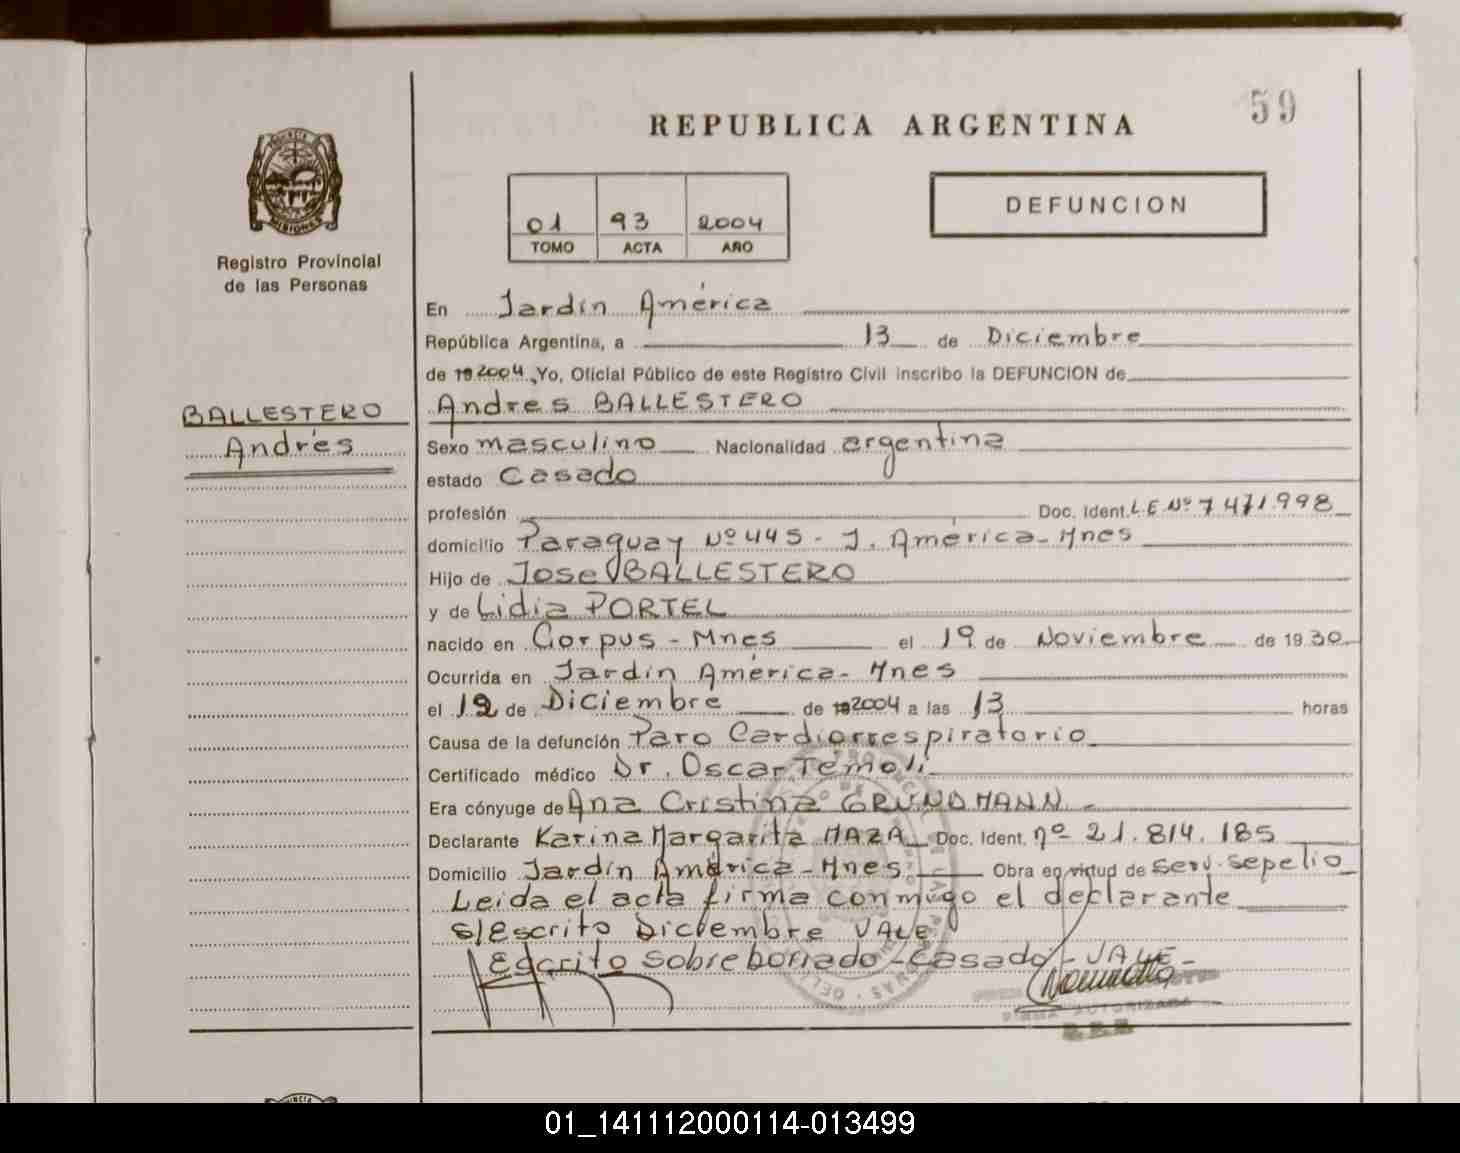 59
REPUBLICA ARGENTINA
PROVINCIA DE
MISIONES
Registro Provincial
de las Personas
01 93 2004
TOMO ACTA AÑO
DEFUNCION
En Jardín América
República Argentina, a 13 de Diciembre
de 19 2004, Yo, Oficial Público de este Registro Civil inscribo la DEFUNCION de
BALLESTERO
Andrés
Andres BALLESTERO
Sexo masculino Nacionalidad argentina
estado Casado
profesión Doc. Ident. L.E Nº 7.471.998
domicilio Paraguay Nº 445 - J. América - Mnes
Hijo de Jose BALLESTERO
y de Lidia PORTEL
nacido en Corpus - Mnes el 19 de Noviembre de 1930
Ocurrida en Jardín América - Mnes
el 12 de Diciembre de 19 2004 a las 13 horas
Causa de la defunción Paro Cardiorrespiratorio
Certificado médico Dr. Oscar Temoli
Era cónyuge de Ana Cristina GRUNDMANN -
Declarante Karina Margarita MAZA Doc. Ident. nº 21.814.185
Domicilio Jardín América - Mnes Obra en virtud de serv. sepelio
Leida el acta firma conmigo el declarante
S/Escrito Diciembre VALE
Escrito sobre borrado - Casado - VALE -
FIRMA AUTORIZADA
01_141112000114-013499